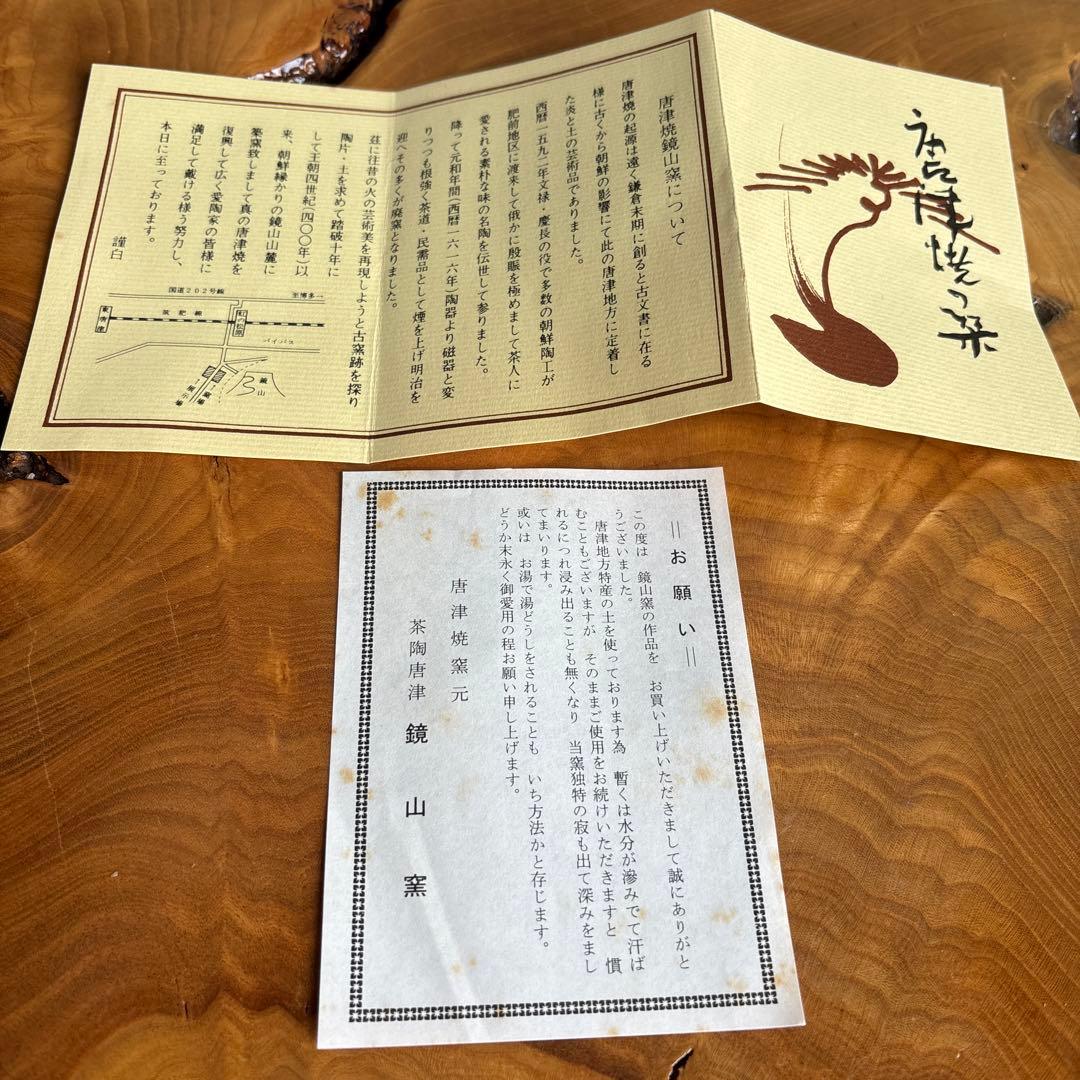 唐津焼の栞
唐津焼鏡山窯について
唐津焼の起源は遠く鎌倉末期に創ると古文書に在る
様に古くから朝鮮の影響にて此の唐津地方に定着し
た炎と土の芸術品でありました。
西暦一五九二年文禄・慶長の役で多数の朝鮮陶工が
肥前地区に渡来して俄かに殷賑を極めまして茶人に
愛される素朴な味の名陶を伝世して参りました。
降って元和年間(西暦一六一六年)陶器より磁器と変
りつつも根強く茶道・民需品として煙を上げ明治を
迎へその多くが廃窯となりました。
茲に往昔の火の芸術美を再現しようと古窯跡を探り
陶片・土を求めて踏破十年に
して王朝四世紀(四〇〇年)以
来、朝鮮縁かりの鏡山山麓に
築窯致しまして真の唐津焼を
復興して広く愛陶家の皆様に
満足して戴ける様う努力し、
本日に至っております。
謹白
国道202号線
至博多
筑肥線
東唐津
虹の松原
バイパス
鏡山
窯場
展示場
＝お願い＝
この度は　鏡山窯の作品を　お買い上げいただきまして誠にありがと
うございました。
唐津地方特産の土を使っております為　暫くは水分が滲みでて汗ば
むこともございますが　そのままご使用をお続けいただきますと　慣
れるにつれ浸み出ることも無くなり　当窯独特の寂も出て深みをまし
てまいります。
或いは　お湯で湯どうしをされることも　いち方法かと存じます。
どうか末永く御愛用の程お願い申し上げます。
唐津焼窯元
茶陶唐津　鏡山窯